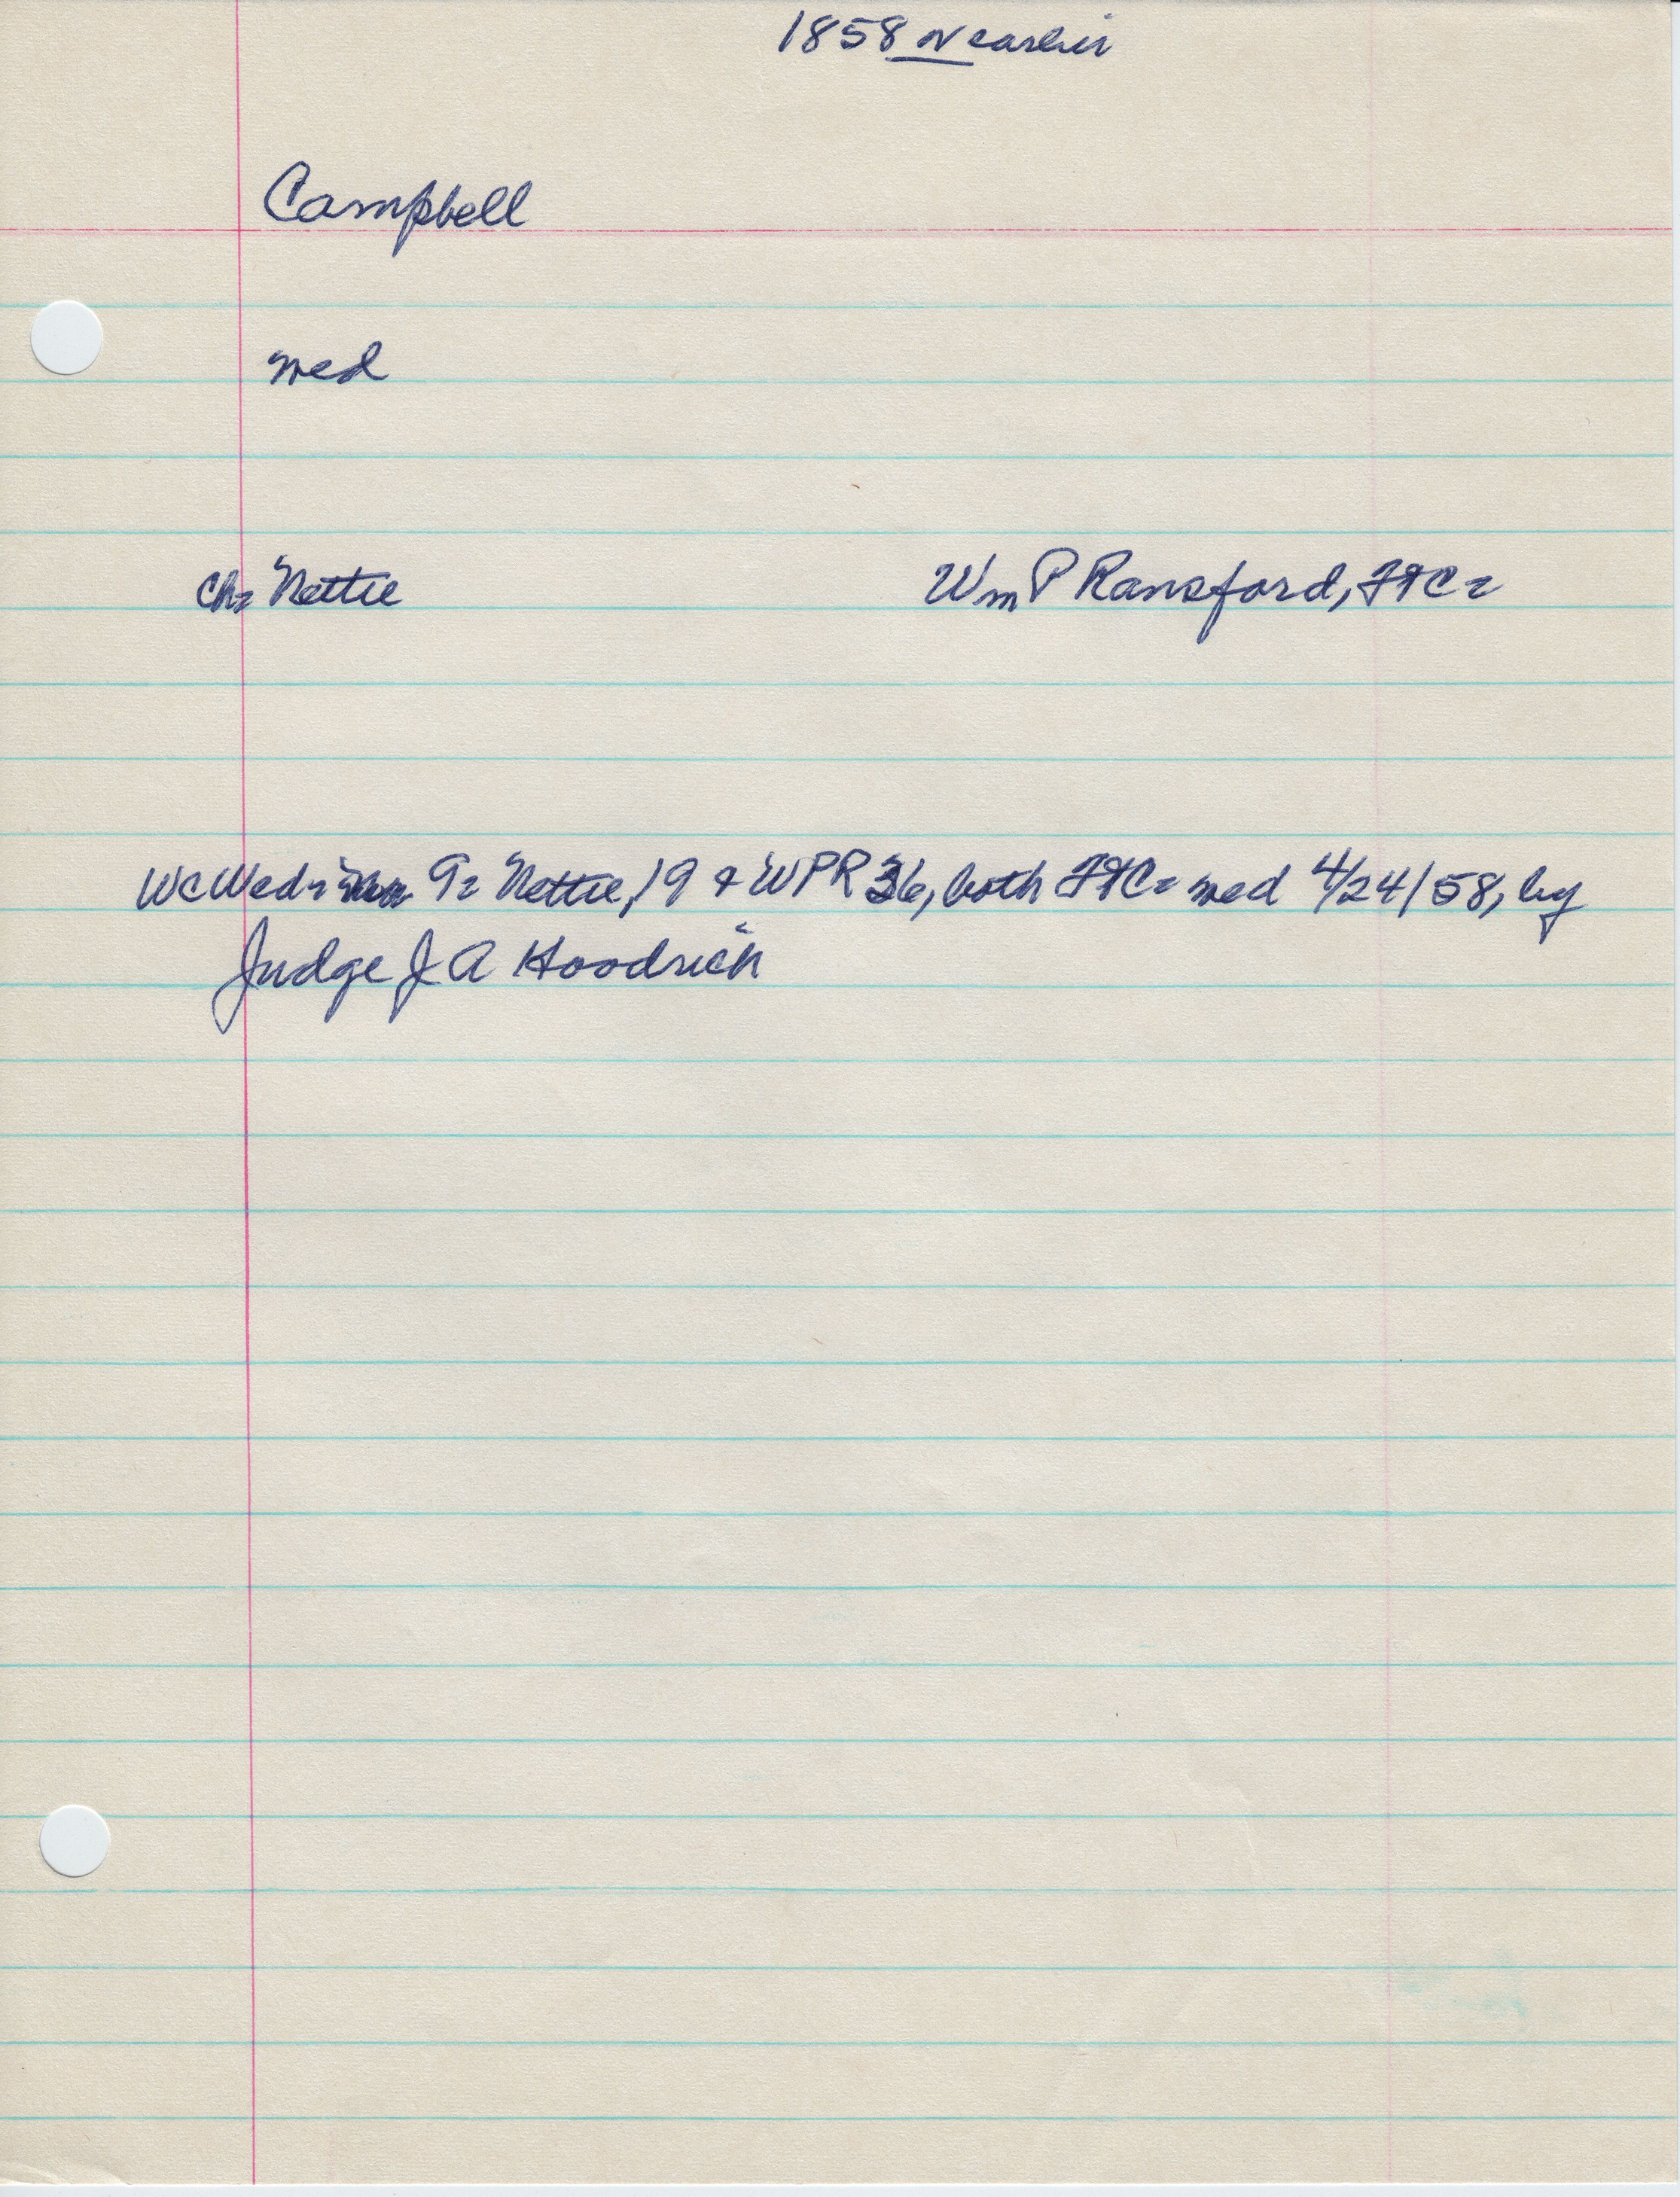 1858 or earlier
Campbell
med
Ch: Nettie Wm P Ransford, FtC:
WC Weds 9: Nettie, 19 & WPR 36, both FtC: med 4/24/58, by
Judge J A Hoodrich